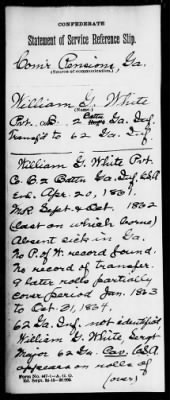 CONFEDERATE
Statement of Service Reference Slip.
Com'r Pensions, Ga.
(Source of communication.)
William G. White
(Name.)
Pvt. Co. 2 Battn Ga. Inf.
Transf'd to 62 Ga. Inf.
William G. White Pvt.
Co. C. 2 Battn Ga. Inf. C.S.A
Enl. Apr. 20, 1861.
M.R. Sept & Oct. 1862
(last on which borne)
Absent sick in Ga.
No P. of W. record found.
No record of transfer.
9 later rolls partially
cover period Jan. 1863
to Oct. 31, 1864.
62 Ga. Inf. not identified,
William G. White, Sergt
Major 62 Ga. Cav. C.S.A
appears on rolls of
(over)